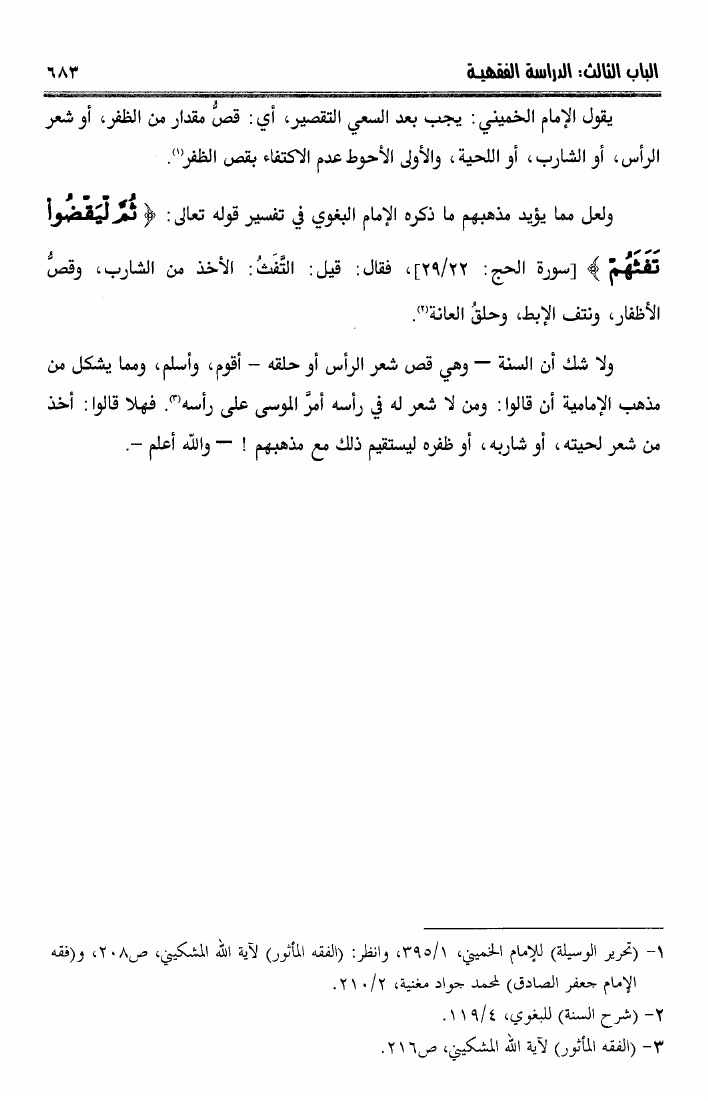 الباب الثالث: الدراسة الفقهية ٦٨٣
يقول الإمام الخميني: يجب بعد السعي التقصير، أي: قصُّ مقدار من الظفر، أو شعر
الرأس، أو الشارب، أو اللحية، والأولى الأحوط عدم الاكتفاء بقص الظفر(١).
ولعل مما يؤيد مذهبهم ما ذكره الإمام البغوي في تفسير قوله تعالى: ﴿ ثُمَّ لْيَقْضُوا
تَفَثَهُمْ ﴾ [سورة الحج: ٢٩/٢٢]، فقال: قيل: التَّفَثُ: الأخذ من الشارب، وقصُّ
الأظفار، ونتف الإبط، وحلقُ العانة(٢).
ولا شك أن السنة – وهي قص شعر الرأس أو حلقه – أقوم، وأسلم، ومما يشكل من
مذهب الإمامية أن قالوا: ومن لا شعر له في رأسه أمرَّ الموسى على رأسه(٣). فهلا قالوا: أخذ
من شعر لحيته، أو شاربه، أو ظفره ليستقيم ذلك مع مذهبهم ! – والله أعلم –.
١- (تحرير الوسيلة) للإمام الخميني، ٣٩٥/١، وانظر: (الفقه المأثور) لآية الله المشكيني، ص٢٠٨، و(فقه
الإمام جعفر الصادق) لمحمد جواد مغنية، ٢١٠/٢.
٢- (شرح السنة) للبغوي، ١١٩/٤.
٣- (الفقه المأثور) لآية الله المشكيني، ص٢١٦.